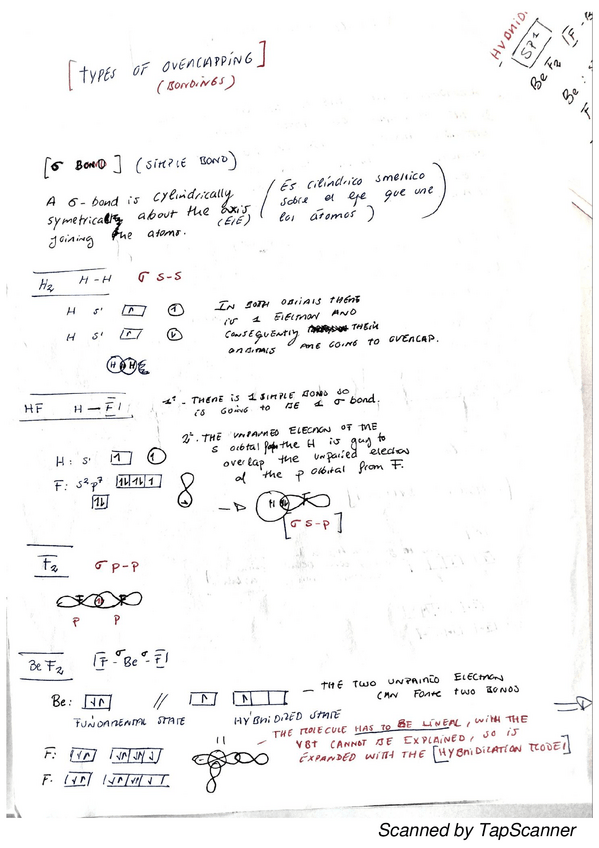 [TYPES OF OVERLAPPING]
(BONDINGS)
HYBRID.
SP¹
Be F₂
Be:
F
[σ BOND] (SIMPLE BOND)
A σ-bond is cylindrically
symetrically about the axis
(EJE)
joining the atoms.
(Es cilíndrico smetrico
sobre el eje que une
los átomos)
H₂ H-H σ S-S
H S¹ 1
H S¹ 1
H H
IN BOTH ORBITALS THERE
IS 1 ELECTRON AND
CONSEQUENTLY THEIR
ORBITALS ARE GOING TO OVERLAP.
HF H-F|
1º- THERE IS 1 SIMPLE BOND SO
IS GOING TO BE 1 σ bond.
2º. THE UNPAIRED ELECTRON OF THE
S orbital from the H is going to
overlap the unpaired electron
of the p orbital from F.
H: S¹
F: S²p⁷
H F
[σ S-P]
F₂ σ P-P
F F
P P
Be F₂ |F -σ Be -σ F|
Be: // — THE TWO UNPAIRED ELECTRON
CAN FORM TWO BONDS
FUNDAMENTAL STATE HYBRIDIZED STATE
— THE MOLECULE HAS TO BE LINEAL, WITH THE
VBT CANNOT BE EXPLAINED, SO IS
EXPANDED WITH THE [HYBRIDIZATION MODEL]
F:
F:
Scanned by TapScanner